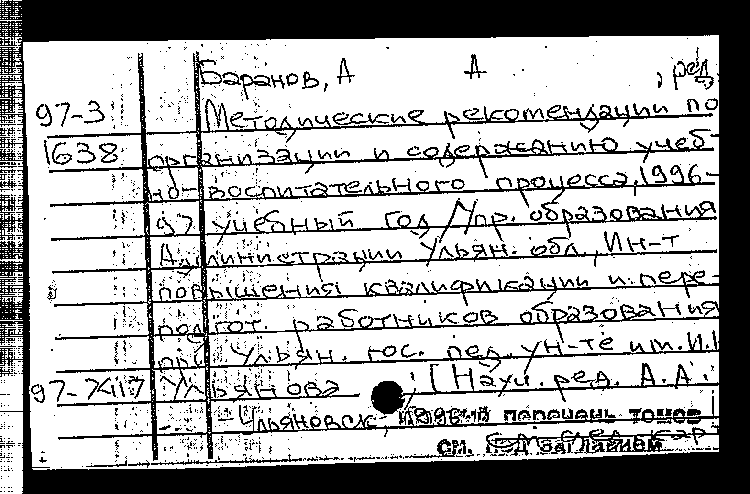 Баранов, А А , ред.
97-3 Методические рекомендации по
1638 организации и содержанию учеб-
но-воспитательного процесса, 1996-
97 учебный год / Упр. образования
Администрации Ульян. обл., Ин-т
повышения квалификации и пере-
подгот. работников образования
при Ульян. гос. пед. ун-те им. И.Н
97-7417 Ульянова ; [Науч. ред. А.А.
- Ульяновск, перечень томов
см. под заглавием